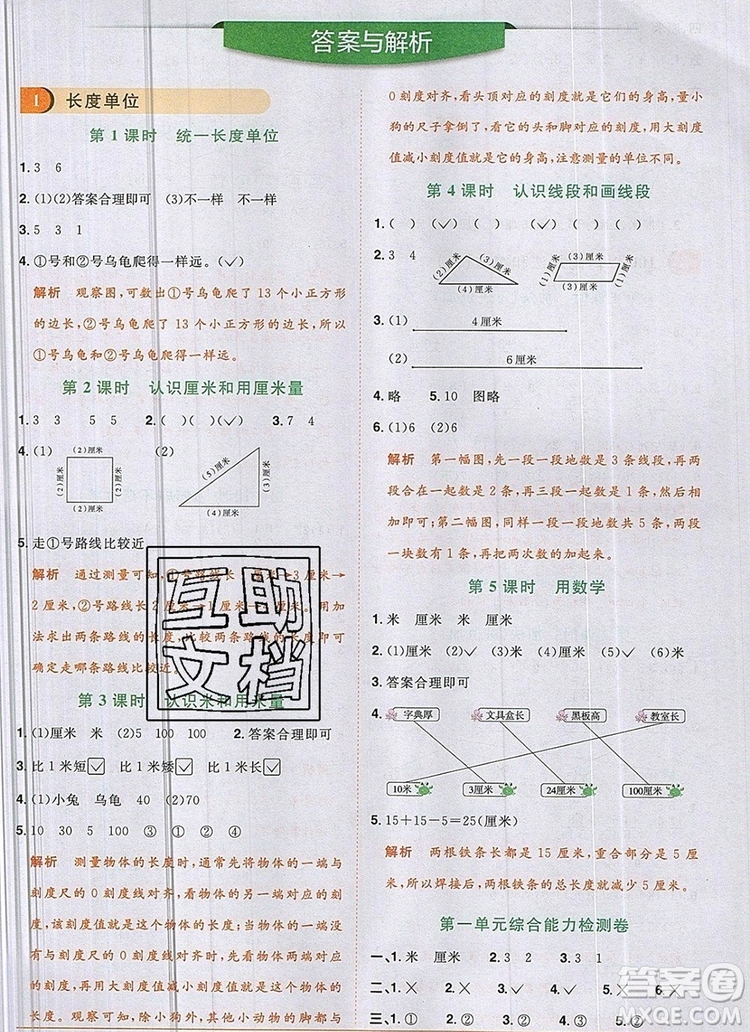 答案与解析
1 长度单位
第1课时 统一长度单位
1. 3 6
2. (1)(2)答案合理即可 (3)不一样 不一样
3. 5 3 1
4. ①号和②号乌龟爬得一样远。(✓)
解析 观察图,可数出①号乌龟爬了13个小正方形
的边长,②号乌龟爬了13个小正方形的边长,所以
①号乌龟和②号乌龟爬得一样远。
第2课时 认识厘米和用厘米量
1. 3 3 5 5 2. ( )( )(✓) 3. 7 4
4. (1) (2)厘米 (2)厘米 (2)厘米 (2)厘米 (2) (5)厘米 (3)厘米 (4)厘米
5. 走①号路线比较近
解析 通过测量可知,①号路线长 厘米→
2厘米;②号路线长2厘米→2厘米→2厘米。用加
法求出两条路线的长度,比较两条路线的长度即可
确定走哪条路线比较近。
第3课时 认识米和用米量
1. (1)厘米 米 (2)5 100 100 2. 答案合理即可
3. 比1米短☑ 比1米长☑ 比1米长☑
4. (1)小兔 乌龟 40 (2)70
5. 10 30 90 ③ ① ④ ②
解析 测量物体的长度时,通常先将物体的一端与
刻度尺的0刻度线对齐,再看物体的另一端对着几
刻度,该刻度值就是这个物体的长度。小蛇一端没有
与0刻度线对齐,用大刻度值减小刻度值就是它的
长度。大象、小狗的脚没有与0刻度线对齐,用大刻
度值减小刻度值就是它的身高,其他小动物的脚都与
0刻度对齐,看头顶对应的刻度就是它们的身高,量小
狗的尺子拿倒了,看它的头和脚对应的刻度,用大刻度
值减小刻度值就是它的身高,注意测量的单位不同。
第4课时 认识线段和画线段
1. ( ) ( ) (✓) ( ) (✓) ( )
2. 3 4 (2)厘米 (3)厘米 (4)厘米 (3)厘米 (1)厘米 (1)厘米 (3)厘米
3. (1) 4厘米
(2) 6厘米
4. 略 5. 10 图略
6. (1)6 (2)6
解析 第一幅图,先一段一段地数是3条线段,再两
段合在一起数是2条,再三段一起数是1条,然后相
加即可;第二幅图,同样一段一段数是5条,两段
一块数有1条,再把两次数的加起来。
第5课时 用数学
1. 米 厘米 米 厘米
2. (1)厘米 (2)厘米 ✓ ✓ ✓
3. 答案合理即可
4. 字典厚 文具盒长 黑板高 教室长
10米 3厘米 24厘米 100厘米
5. 15+15-5=25(厘米)
解析 两根铁条长都是15厘米,重叠部分是5厘
米,所以焊接后,两根铁条的总长度就要减少5厘米。
第一单元综合能力检测卷
一、1. 米 厘米 米 2. 3 3. 3 1
二、1. ✓ 2. ✓ 3. ✓ 4. ✓ 5. ✕ 6. ✕
三、1. ① 2. ② 3. ③ 4. ③ 5. ②
互助
文档
答案圈
MXQE.COM